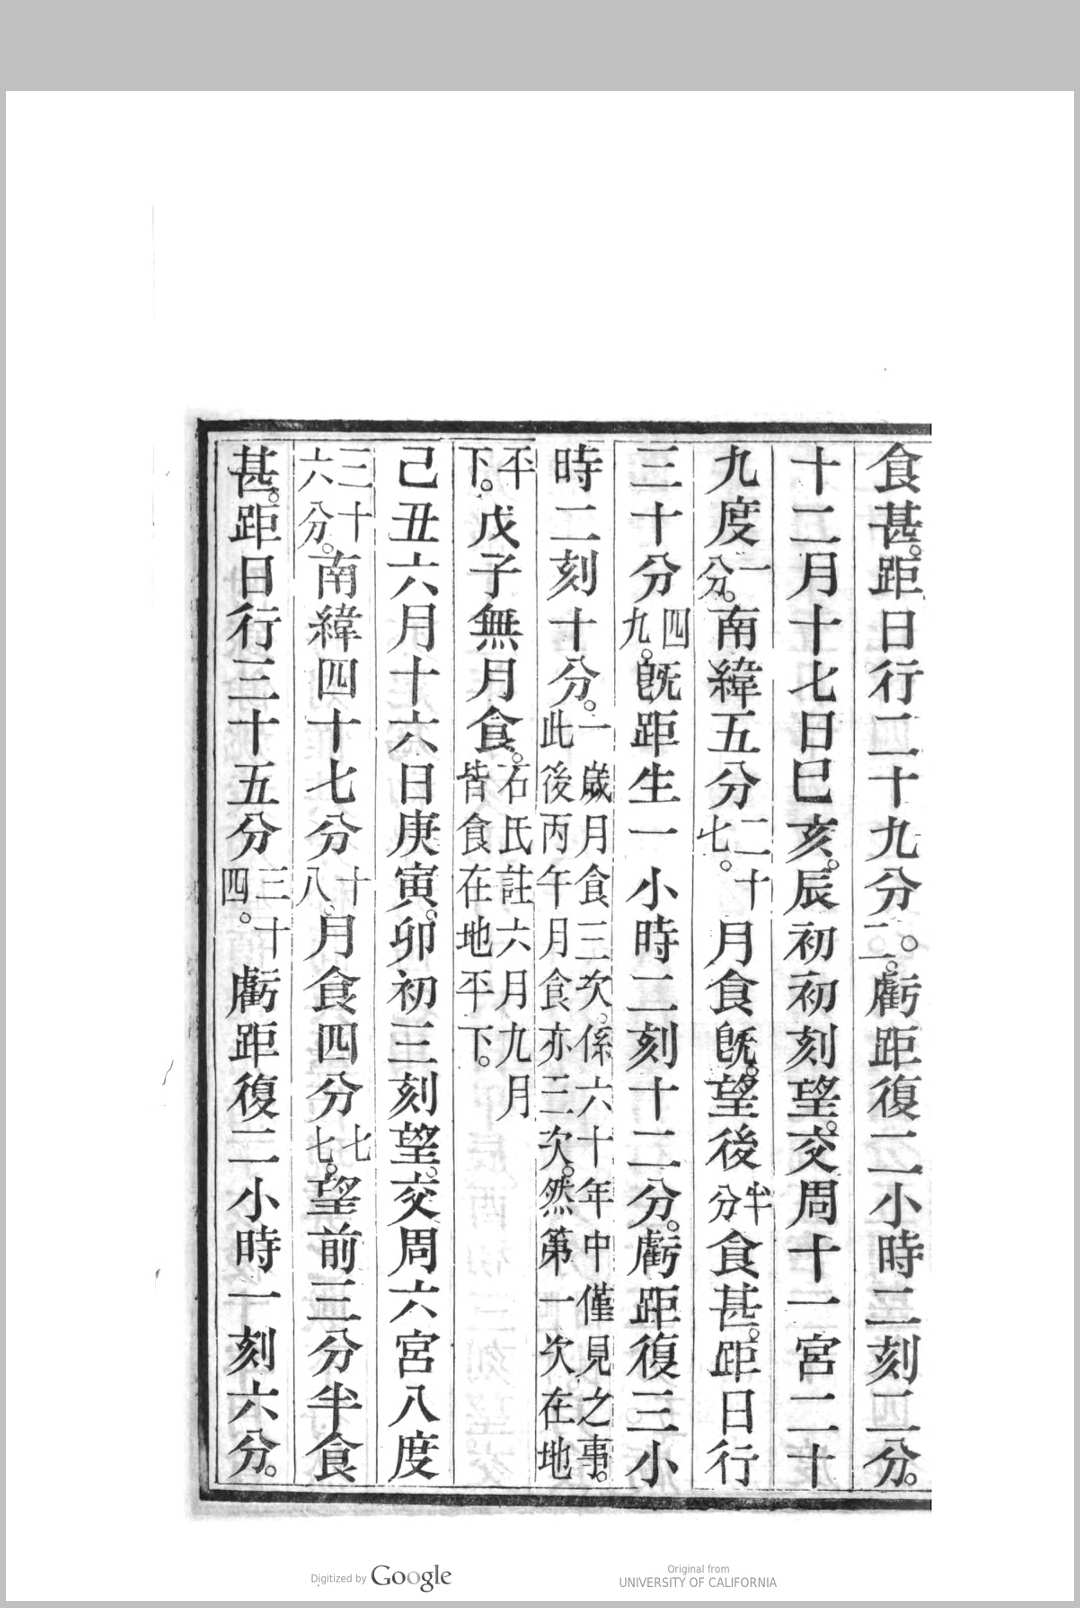 食甚。距日行二十九分。二。虧距復二小時二刻二分。
十二月十七日巳亥。辰初初刻望。交周十一宮二十
九度一分。南緯五分二十七。月食旣。望後半分食甚。距日行
三十分四九。旣距生一小時二刻十二分。虧距復三小
時二刻十分。一歲月食三次。係六十年中僅見之事。此後丙午月食亦三次。然第一次在地
平下。戊子無月食。石氏註六月九月皆食在地平下。
己丑六月十六日庚寅。卯初三刻望。交周六宮八度
三十六分。南緯四十七分十八。月食四分七七。望前三分半食
甚。距日行三十五分三十四。虧距復二小時一刻六分。
Digitized by Google
Original from
UNIVERSITY OF CALIFORNIA